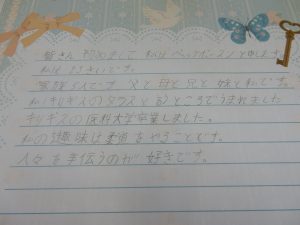 皆さん 初めまして 私は ベックボースン と申します
私は 25さいです。
家族5人です 父と母と兄と妹と私です。
私はキルギスのタラスと言うところでうまれました
キルギスの医科大学卒業しました。
私の趣味は柔道をやることです。
人々を手伝うのが好きです。